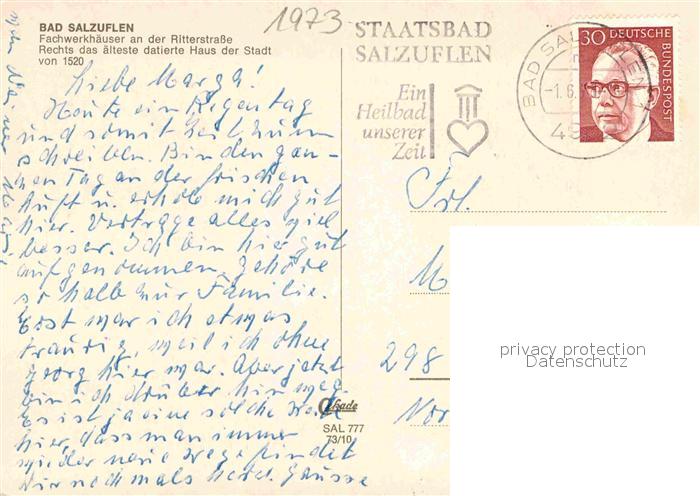 BAD SALZUFLEN
Fachwerkhäuser an der Ritterstraße
Rechts das älteste datierte Haus der Stadt
von 1520
1973
STAATSBAD
SALZUFLEN
Ein
Heilbad
unserer
Zeit
BAD SALZUFLEN
-1.6.
49
30 DEUTSCHE
BUNDESPOST
Liebe Marga!
Heute ein Regentag
und somit Zeit zum
schreiben. Bin den gan-
zen Tag an der frischen
Luft u. erhole mich gut
hier. Vertrage alles viel
besser. Ich bin hier gut
aufgenommen, gehöre
so halb zur Familie.
Erst war ich etwas
traurig, weil ich ohne
Georg hier war. Aber jetzt
bin ich drüber hinweg
Es ist ja eine solche
hier, dass man immer
wieder neue Wege findet
Dir nochmals herzl. Grüsse
Frl.
M
298
Nor
privacy protection
Datenschutz
SAL 777
73/10